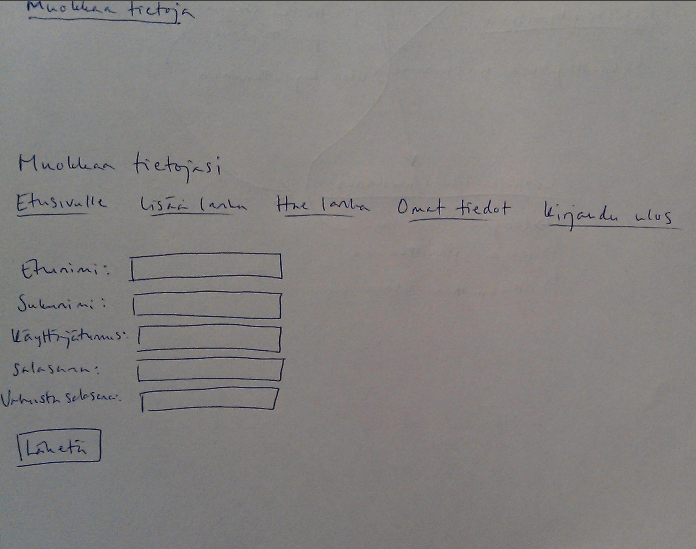 Muokkaa tietoja
Muokkaa tietojasi
Etusivulle Lisää lanka Hae lanka Omat tiedot Kirjaudu ulos
Etunimi:
Sukunimi:
Käyttäjätunnus:
Salasana:
Vahvista salasana:
Lähetä